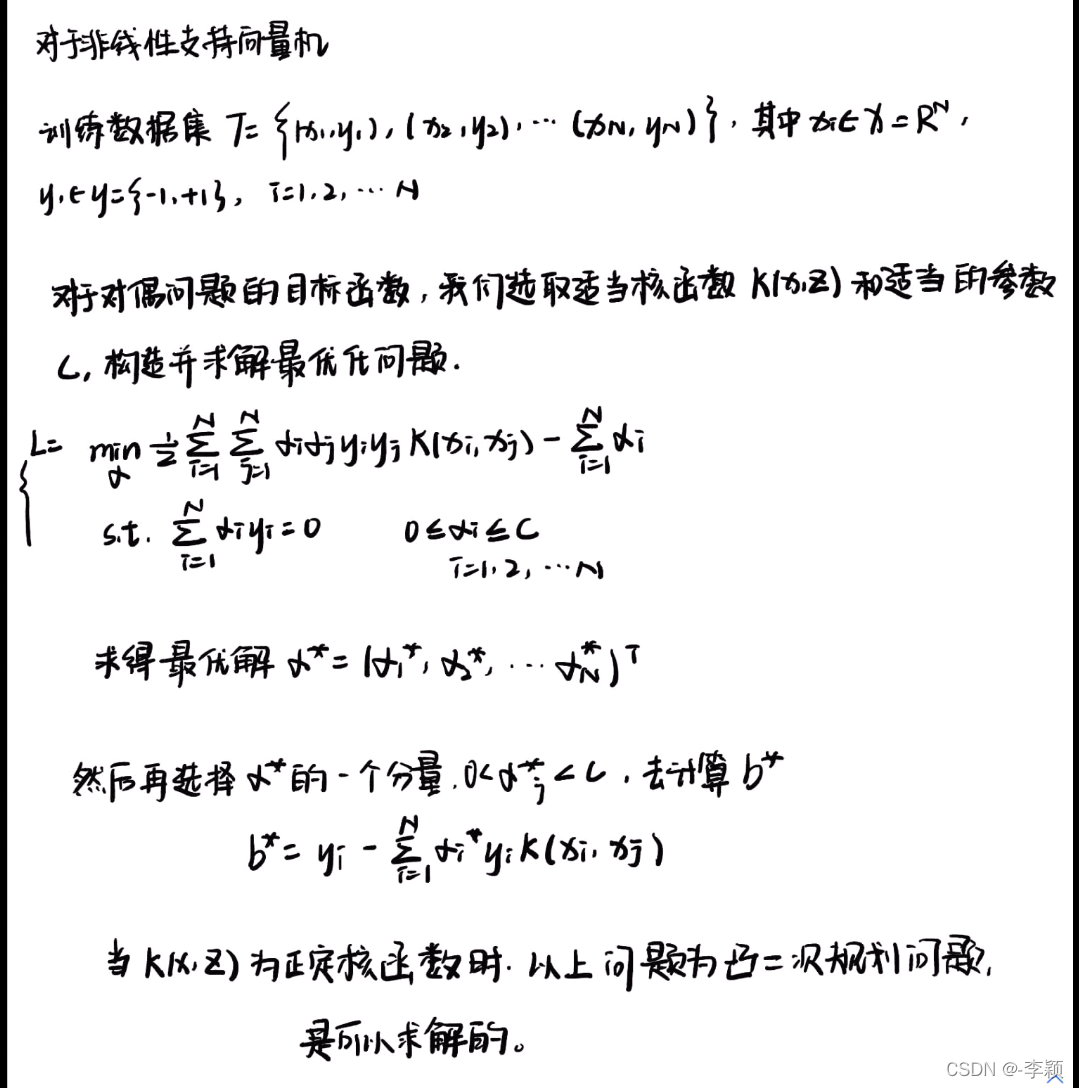 对于非线性支持向量机
训练数据集 T= {(x₁,y₁), (x₂,y₂), ⋯ (xN, yN)}, 其中 xi∈ X = Rᴺ,
yi∈y={-1,+1}, i=1,2, ⋯ N
对于对偶问题的目标函数,我们选取适当核函数 K(x,z) 和适当的参数
C, 构造并求解最优化问题.
L= min α 1/2 ∑ᵢ₌₁ᴺ ∑ⱼ₌₁ᴺ αiαjyiyj K(xi, xj) - ∑ᵢ₌₁ᴺ αi
s.t. ∑ᵢ₌₁ᴺ αiyi=0 0≤αi≤C
i=1,2, ⋯N
求得最优解 α* = (α₁*, α₂*, ⋯ αN*)ᵀ
然后再选择 α*的一个分量, 0<αj*<C, 去计算 b*
b* = yi - ∑ᵢ₌₁ᴺ αi* yi K(xi, xj)
当 K(x,z) 为正定核函数时. 以上问题为凸二次规划问题,
是可以求解的。
CSDN @-李颖